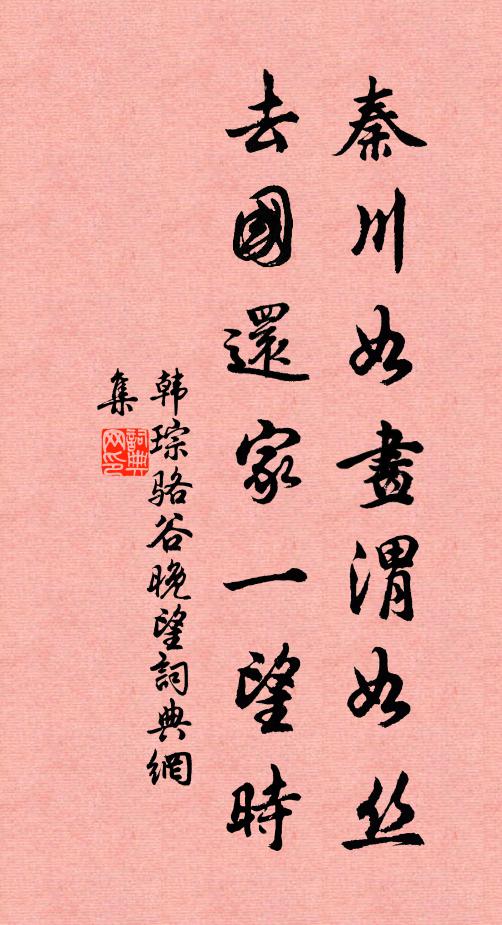 秦川如畫渭如丝
去國還家一望時
韩琮骆谷晚望詞典網
集
詞典
网印